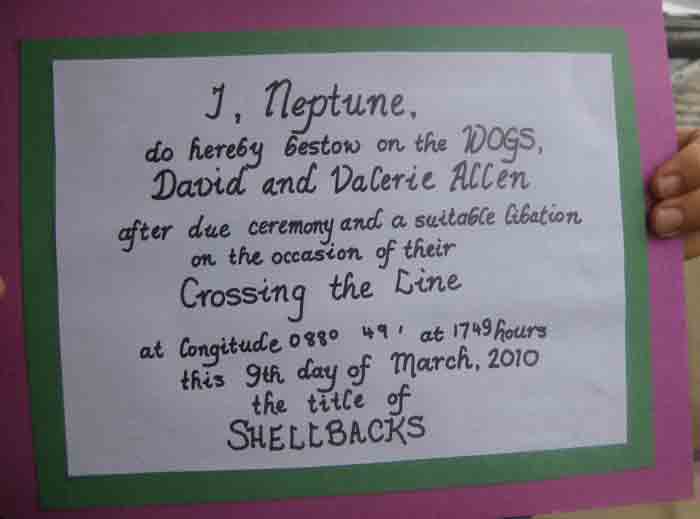 I, Neptune,
do hereby bestow on the WOGS,
David and Valerie Allen
after due ceremony and a suitable libation
on the occasion of their
Crossing the Line
at longitude 0880 49' at 1749 hours
this 9th day of March, 2010
the title of
SHELLBACKS